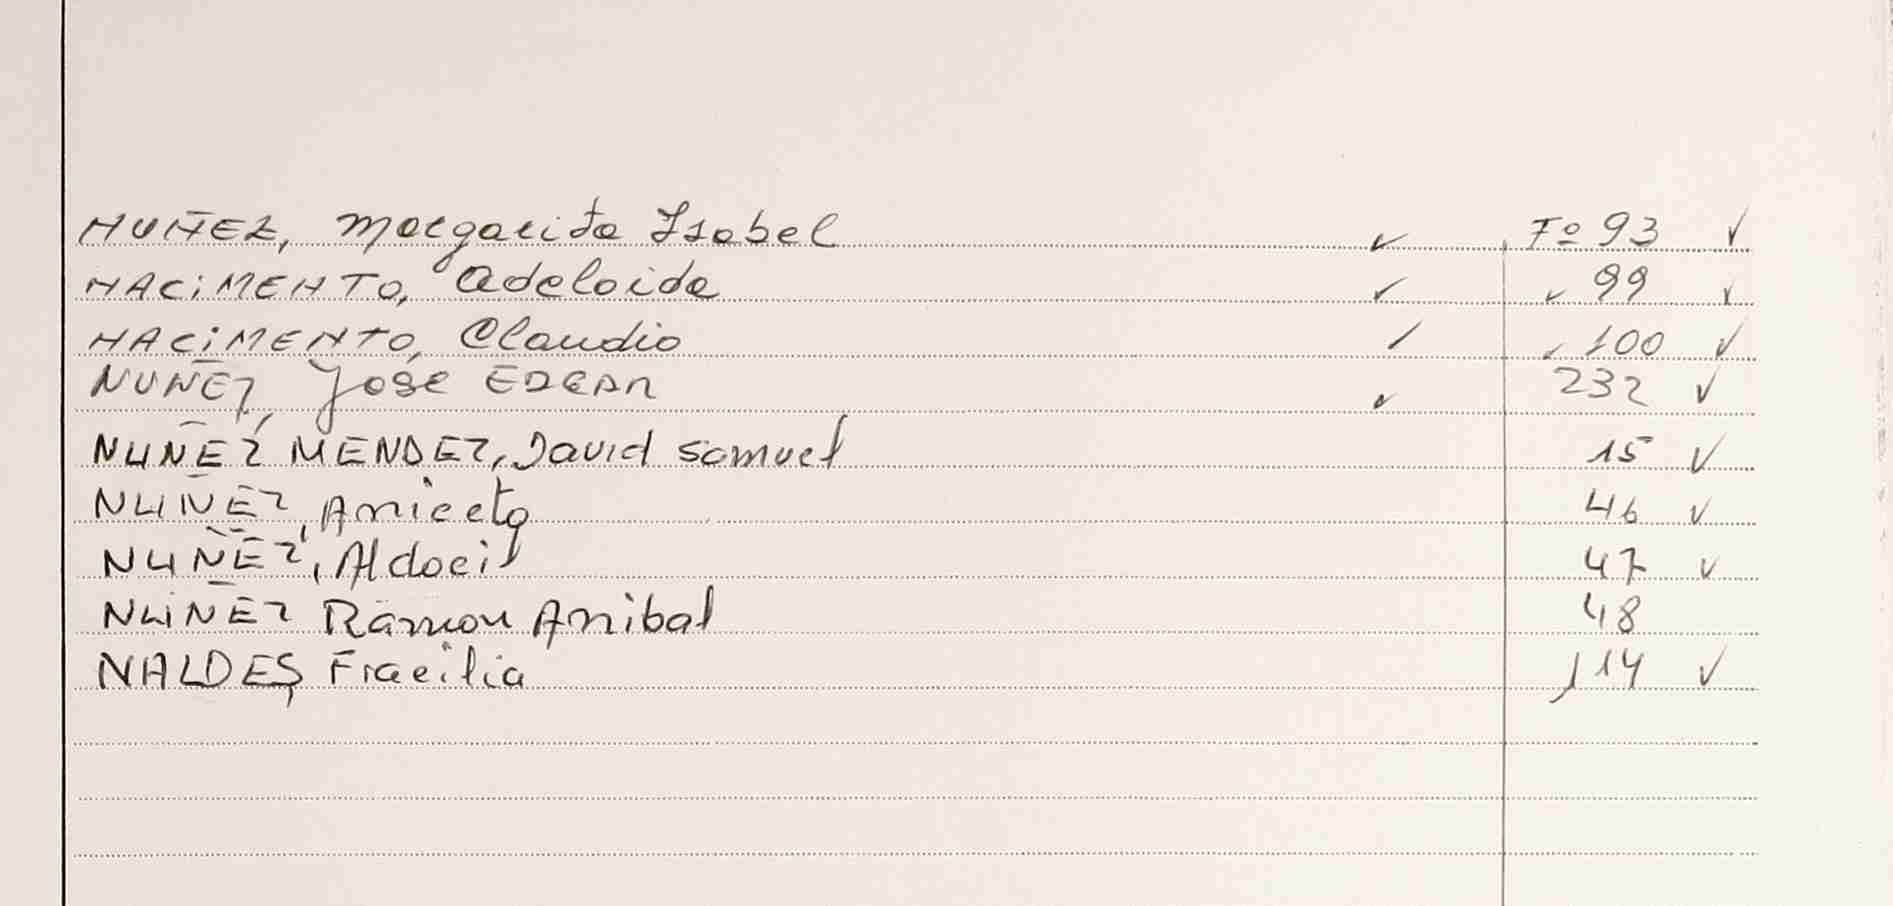 NUÑEZ, Margarita Isabel ✓ Fº 93 ✓
NACiMENTO, Adelaida ✓ ✓ 99 ✓
NACiMENTO, Claudio ✓ ✓ 100 ✓
NUÑEZ, José EDGAR ✓ 232 ✓
NUÑEZ MENDEZ, David Samuel 15 ✓
NUÑEZ, Aniceto 46 ✓
NUÑEZ, Aldocil 47 ✓
NUÑEZ Ramon Anibal 48
NALDES, Fracilia 114 ✓